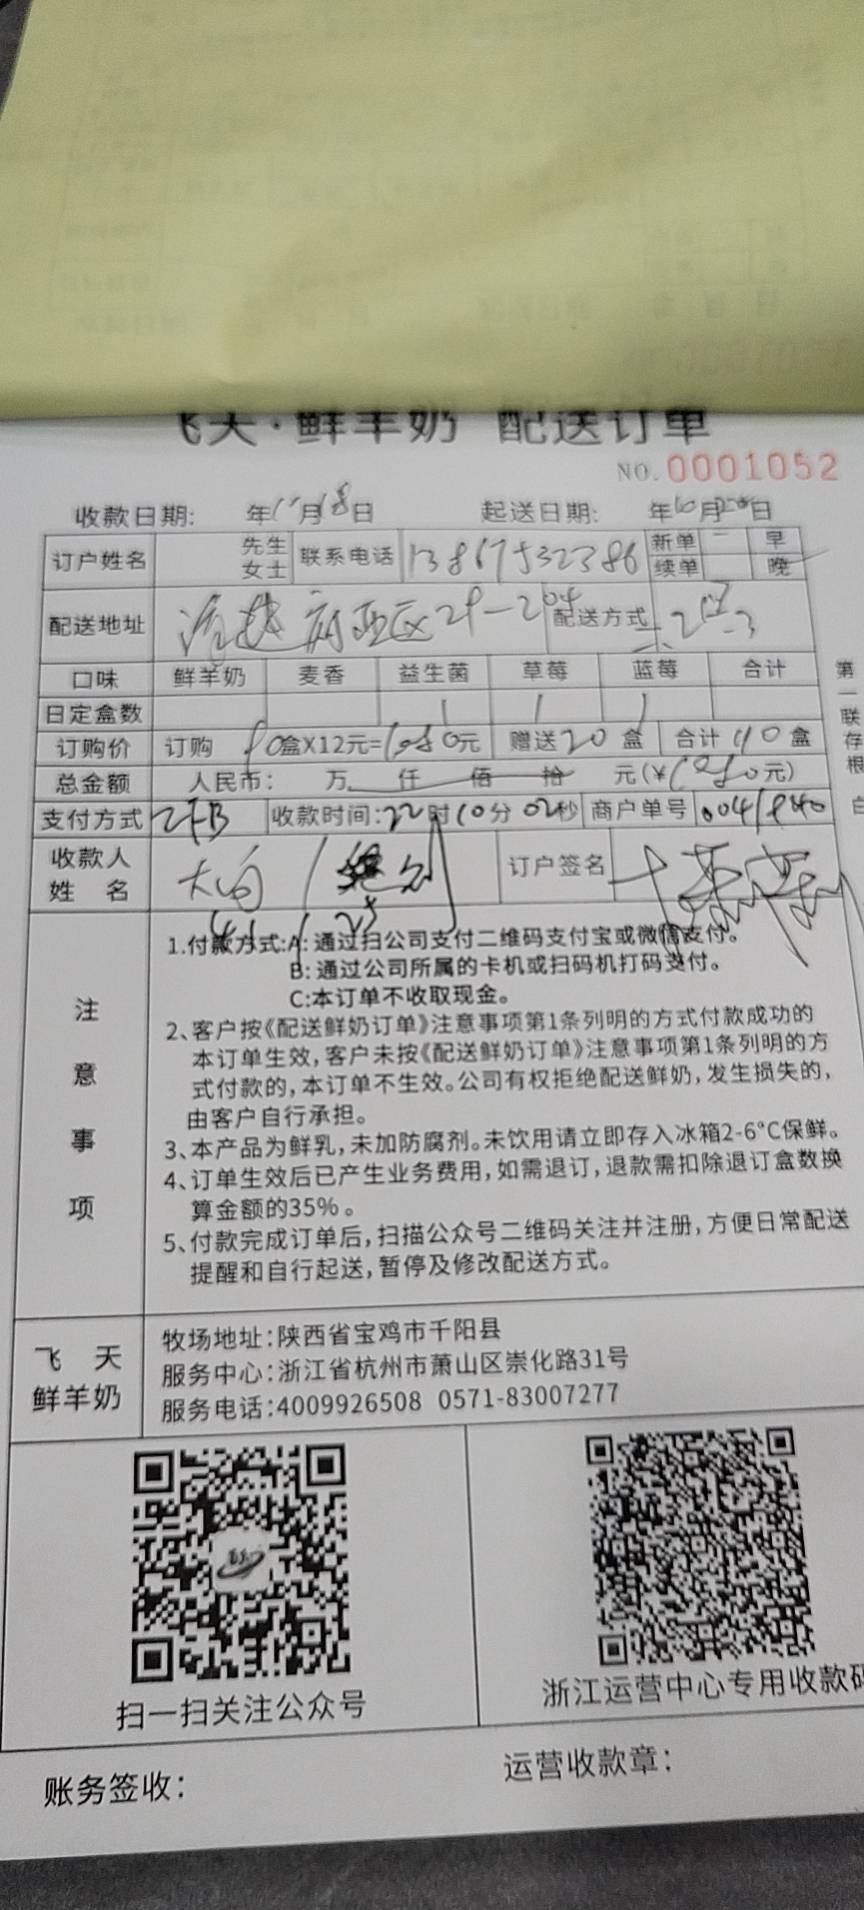 飞天·鲜羊奶 配送订单
NO.0001052
收款日期: 年 月18日 起送日期: 年10月 日
订户姓名 先生 女士 联系电话 13867532386 新单 续单 早 晚
配送地址 府西区29-204 配送方式
口味 鲜羊奶 麦香 益生菌 草莓 蓝莓 合计
日定盒数 1 1 1
订购价 订购 90盒X12元=1080元 赠送20盒 合计110盒
总金额 人民币: 万 仟 佰 拾 元(¥1080元)
支付方式 ZFB 收款时间:22时10分02秒 商户单号
收款人 姓名 订户签名
注意事项
1.付款方式:A: 通过扫公司支付二维码支付宝或微信支付。
B: 通过公司所属的卡机或扫码机打码支付。
C:本订单不收取现金。
2、客户按《配送鲜奶订单》注意事项第1条列明的方式付款成功的
本订单生效,客户未按《配送鲜奶订单》注意事项第1条列明的方
式付款的,本订单不生效。公司有权拒绝配送鲜奶,发生损失的,
由客户自行承担。
3、本产品为鲜乳,未加防腐剂。未饮用请立即存入冰箱2-6°C保鲜。
4、订单生效后已产生业务费用,如需退订,退款需扣除退订盒数换
算金额的35%。
5、付款完成订单后,扫描公众号二维码关注并注册,方便日常配送
提醒和自行起送,暂停及修改配送方式。
飞天 鲜羊奶
牧场地址:陕西省宝鸡市千阳县
服务中心:浙江省杭州市萧山区崇化路31号
服务电话:4009926508 0571-83007277
扫一扫关注公众号
浙江运营中心专用收款码
账务签收:
运营收款章:
第一联存根 白